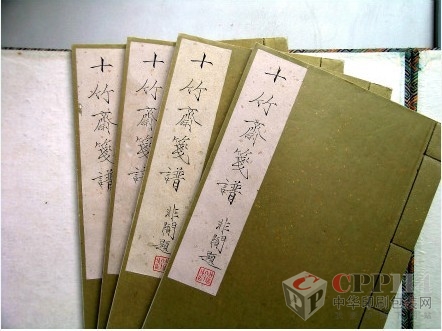 十竹齋箋譜
十竹齋箋譜
十竹齋箋譜 非闇題
十竹齋箋譜 非闇題
CPP114
中华印刷包装网